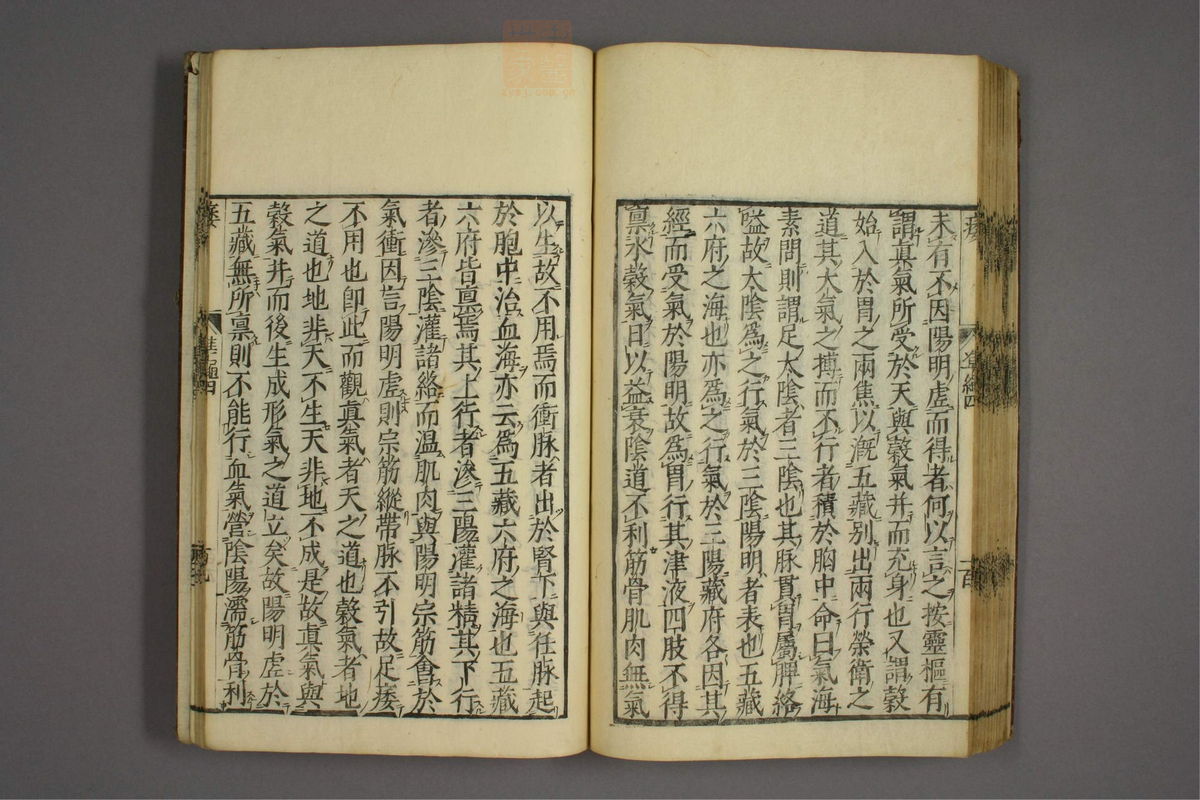 未有不因陽明虚而得者何以言之按靈樞有
謂真氣所受於天與穀氣并而充身也又謂穀
始入於胃之兩焦以溉五藏别出兩行榮衛之
道其大氣之搏而不行者積於胸中命曰氣海
素問則謂足太陰者三陰也其脉貫胃屬脾絡
嗌故太陰為之行氣於三陰陽明者表也五藏
六府之海也亦為之行氣於三陽藏府各因其
經而受氣於陽明故為胃行其津液四肢不得
禀水穀氣日以益衰陰道不利筋骨肌肉無氣
以生故不用焉而衝脉者出於腎下與任脉起
於胞中治血海亦云為五藏六府之海也五藏
六府皆禀焉其上行者滲三陽灌諸精其下行
者滲三陰灌諸絡而温肌肉與陽明宗筋會於
氣衝因言陽明虚則宗筋縱帶脉不引故足痿
不用也即此而觀真氣者天之道也穀氣者地
之道也地非天不生天非地不成是故真氣與
穀氣并而後生成形氣之道立矣故陽明虚於
五藏無所禀則不能行血氣營陰陽濡筋骨利
痿